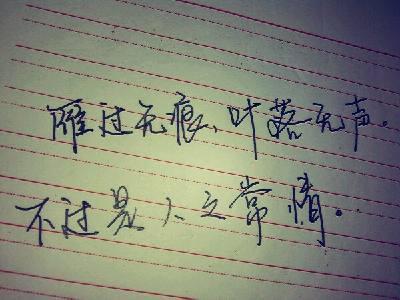 雁过无痕、叶落无声。
不过是人之常情。